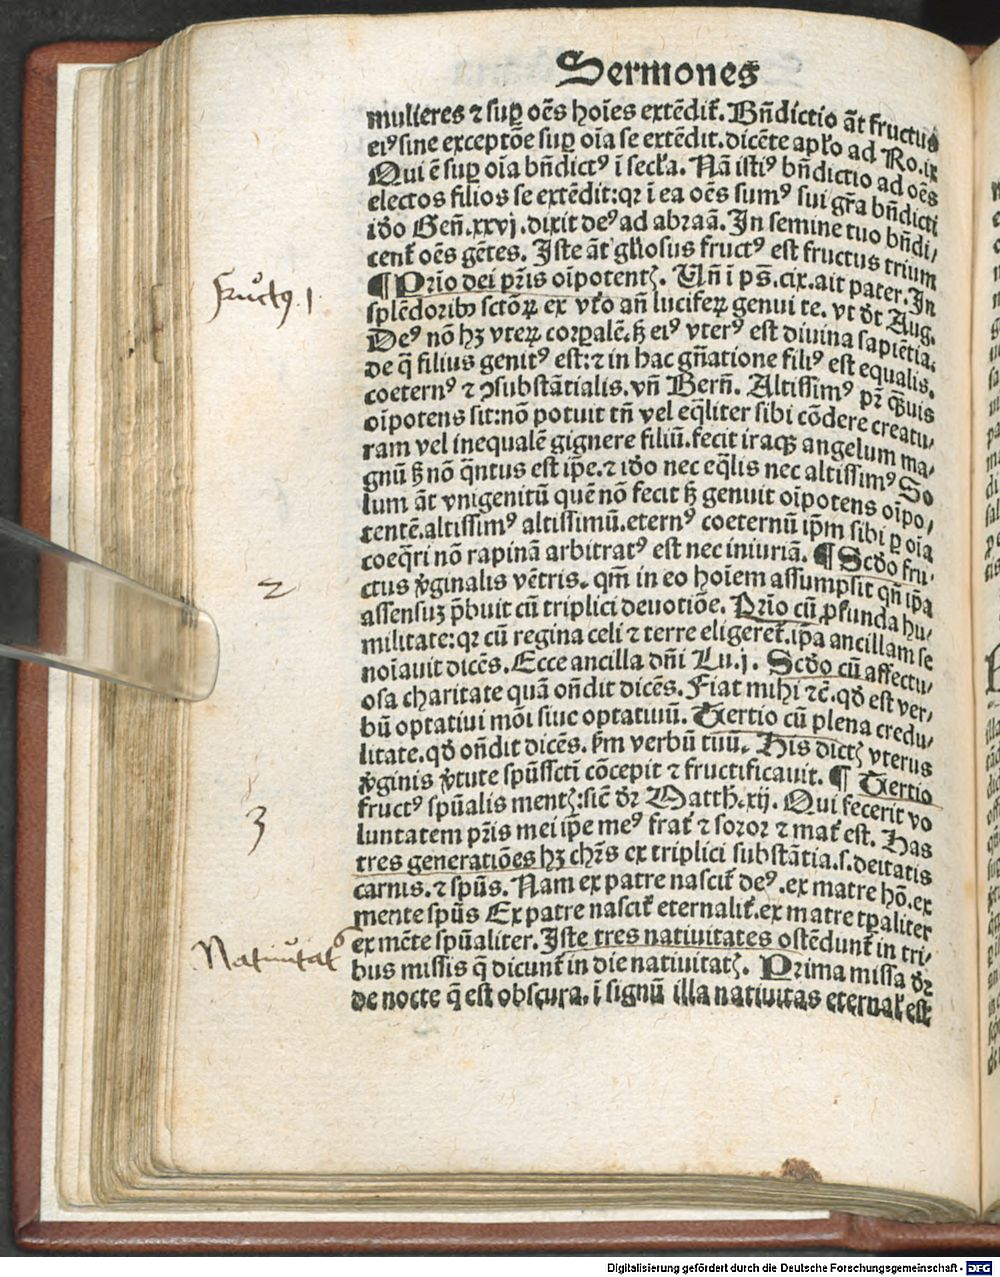 Sermones
mulieres ⁊ suꝑ oēs hoīes extēdit̄. Bn̄dictio āt fructus
eiꝰ sine exceptōe suꝑ oīa se extēdit. dicēte apl̄o ad Ro. ix
Qui ē suꝑ oīa bn̄dictꝰ ī secl̄a. Nā istiꝰ bn̄dictio ad oēs
electos filios se extēdit: qꝛ ī ea oēs sumꝰ sui gr̄a bn̄dicti
iđo Gen̄. xxvj. dixit deꝰ ad abraā. In semine tuo bn̄di⸗
cent̄ oēs gētes. Iste āt gl̄iosus fructꝰ est fructus trium
¶ Prīo dei pr̄is oīpotentꝭ. Un̄ ī ps̄. cix. ait pater. In
splēdoribꝰ sctōꝝ ex vt̄o an̄ luciferꝝ genui te. vt dr̄ Aug.
Deꝰ nō hꝫ vterꝝ corꝑalē. sꝫ eiꝰ vterꝰ est diuina sapiētia.
de q̄ filius genitꝰ est: ⁊ in hac gn̄atione filiꝰ est equalis.
coeternꝰ ⁊ ꝯsubstātialis. vn̄ Bern̄. Altissimꝰ pr̄ q̄uis
oīpotens sit: nō potuit tn̄ vel eq̄liter sibi cōdere creatu⸗
ram vel inequalē gignere filiū. fecit itaqꝫ angelum ma⸗
gnū sꝫ nō q̄ntus est ip̄e. ⁊ iđo nec eq̄lis nec altissimꝰ So
lum āt vnigenitū quē nō fecit sꝫ genuit oīpotens oīpo⸗
tentē. altissimꝰ altissimū. eternꝰ coeternū ip̄m sibi ꝑ oīa
coeq̄ri nō rapinā arbitratꝰ est nec iniuriā. ¶ Scđo fru⸗
ctus v̄ginalis vētris. qm̄ in eo hoīem assumpsit qn̄ ip̄a
assensuꝫ p̄buit cū triplici deuotiōe. Prīo cū ꝓfunda hu⸗
militate: qꝛ cū regina celi ⁊ terre eligeret̄. ip̄a ancillam se
noīauit dicēs. Ecce ancilla dn̄i Lu. j. Scđo cū affectu⸗
osa charitate quā on̄dit dicēs. Fiat mihi ⁊c̄. qđ est ver⸗
bū optatiui mōi siue optatiuū. Tertio cū plena credu⸗
litate. qđ on̄dit dicēs. ẜm verbū tuū. His dictꝭ vterus
v̄ginis v̄tute spūssctī cōcepit ⁊ fructificauit. ¶ Tertio
fructꝰ spūalis mentꝭ: sic̄ dr̄ Matth. xij. Qui fecerit vo
luntatem pr̄is mei ip̄e meꝰ frat̄ ⁊ soror ⁊ mat̄ est. Has
tres generatiōes hꝫ chr̄s ex triplici substātia. s. deitatis
carnis. ⁊ spūs. Nam ex patre nascit̄ deꝰ. ex matre hō. ex
mente spūs Ex patre nascit̄ eternalit̄. ex matre tꝑaliter
ex mēte spūaliter. Iste tres natiuitates ostēdunt̄ in tri⸗
bus missis q̄ dicunt̄ in die natiuitatꝭ. Prima missa dr̄
de nocte q̄ est obscura. ī signū illa natiuitas eternal̄ est
fructꝰ. 1
2
3
Natiuitas
Digitalisierung gefördert durch die Deutsche Forschungsgemeinschaft - DFG